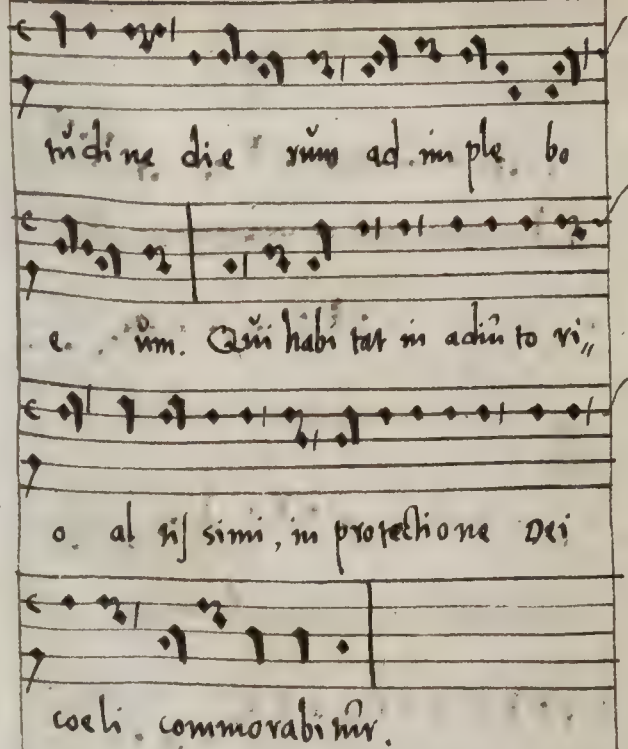 tŭdine die rŭm ad im ple bo
e. ŭm. Qŭi habi tat in adiŭ to ri,,
o. al tissimi, in protectione Dei
coeli. commorabitŭr.